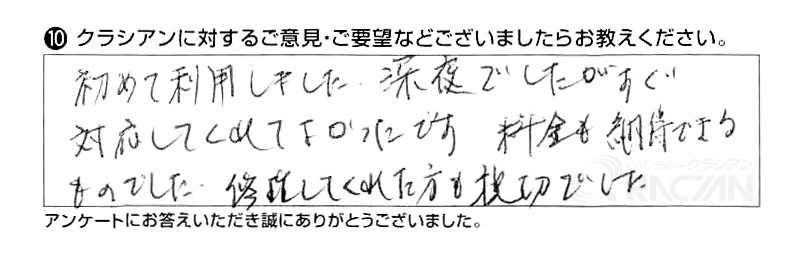 ⑩ クラシアンに対するご意見・ご要望などございましたらお教えください。
初めて利用しました. 深夜でしたがすぐ
対応してくれてよかったです 料金も納得できる
ものでした. 修理してくれた方も親切でした
アンケートにお答えいただき誠にありがとうございました。